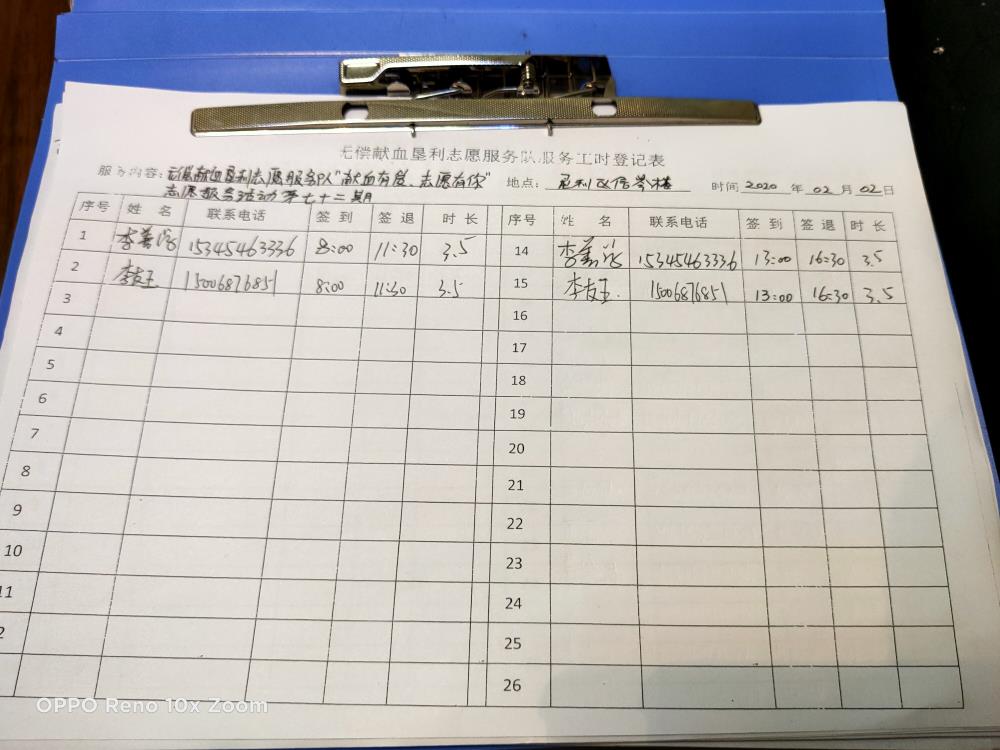 无偿献血垦利志愿服务队服务工时登记表
服务内容：无偿献血垦利志愿服务队"献血有爱、志愿有你" 地点： 垦利区信誉楼 时间 2020 年 02 月 02 日
志愿服务活动第七十二期
序号 姓 名 联系电话 签 到 签 退 时 长 序号 姓 名 联系电话 签 到 签 退 时 长
1 李 15345463336 8:00 11:30 3.5 14 李 15345463336 13:00 16:30 3.5
2 李友玉 15006876851 8:00 11:30 3.5 15 李友玉 15006876851 13:00 16:30 3.5
3 16
4 17
5 18
6 19
7 20
8 21
9 22
10 23
11 24
2 25
26
OPPO Reno 10x Zoom